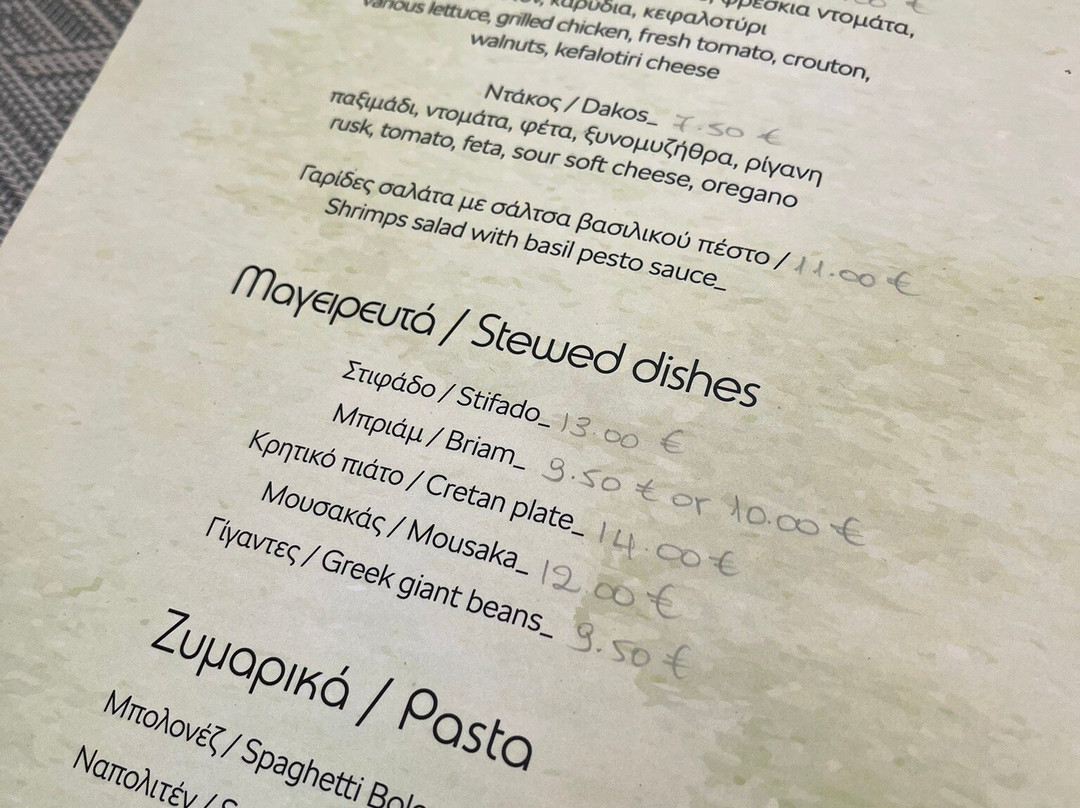 φρέσκια ντομάτα,
καρύδια, κειφαλοτύρι
various lettuce, grilled chicken, fresh tomato, crouton,
walnuts, kefalotiri cheese
Ντάκος / Dakos_ 7.50 €
παξιμάδι, ντομάτα, φέτα, ξυνομυζήθρα, ρίγανη
rusk, tomato, feta, sour soft cheese, oregano
Γαρίδες σαλάτα με σάλτσα βασιλικού πέστο / 11.00 €
Shrimps salad with basil pesto sauce_
Μαγειρευτά / Stewed dishes
Στιφάδο / Stifado_ 13.00 €
Μπριάμ / Briam_ 9.50 € or 10.00 €
Κρητικό πιάτο / Cretan plate_ 14.00 €
Μουσακάς / Mousaka_ 12.00 €
Γίγαντες / Greek giant beans_ 9.50 €
Ζυμαρικά / Pasta
Μπολονέζ / Spaghetti Bolo
Ναπολιτέν / S